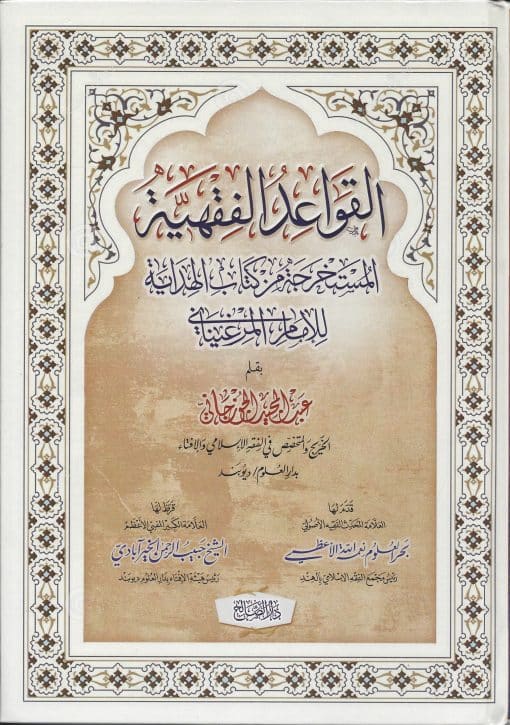 القواعد الفقهية
المستخرجة من كتاب الهداية
للإمام المرغيناني
بقلم
عبد المجيد الجوزجاني
الخريج والمتخصص في الفقه الإسلامي والإفتاء
بدار العلوم / ديوبند
قدم لها
العلامة المحدث الفقيه الأصولي
بحر العلوم نعمة الله الأعظمي
رئيس مجمع الفقه الإسلامي بالهند
قرظ لها
العلامة الكبير المفتي الأعظم
الشيخ حبيب الرحمن الخيرآبادي
رئيس هيئة الإفتاء بدار العلوم ديوبند
دار الصالح